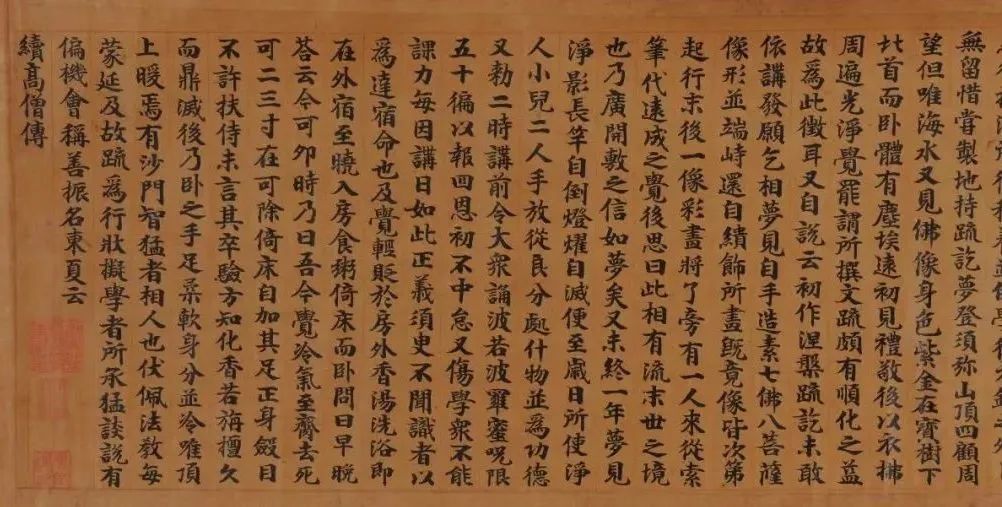 無留惜嘗製地持疏訖夢登須弥山頂四顧周
望但唯海水又見佛像身色紫金在寶樹下
北首而卧體有塵埃遠初見禮敬後以衣拂
周遍光淨覺罷謂所撰文疏頗有順化之益
故為此徵耳又自說云初作涅槃疏訖未敢
依講發願乞相夢見自手造素七佛八菩薩
像形並端峙還自繢飾所畫既竟像皆次第
起行末後一像彩畫將了旁有一人來從索
筆代遠成之覺後思曰此相有流末世之境
也乃廣開敷之信如夢矣又未終一年夢見
淨影長竿自倒燈耀自滅便至歲日所使淨
人小兒二人手放從良分處什物並為功德
又勑二時講前令大衆誦波若波羅蜜呪限
五十徧以報四恩初不中怠又傷學衆不能
課力每因講日如此正義須臾不聞識者以
為達宿命也及覺輕貶於房外香湯洗浴即
在外宿至曉入房食粥倚床而卧問曰早晚
荅云今可卯時乃曰吾今覺冷氣至齊去死
可二三寸在可除倚床自加其足正身斂目
不許扶侍未言其卒驗方知化香若旃檀久
而鼎滅後乃卧之手足柔軟身分並冷唯頂
上暖焉有沙門智猛者相人也伏佩法教每
蒙延及故疏為行狀擬學者所承猛談說有
偏機會稱善振名東夏云
續高僧傳